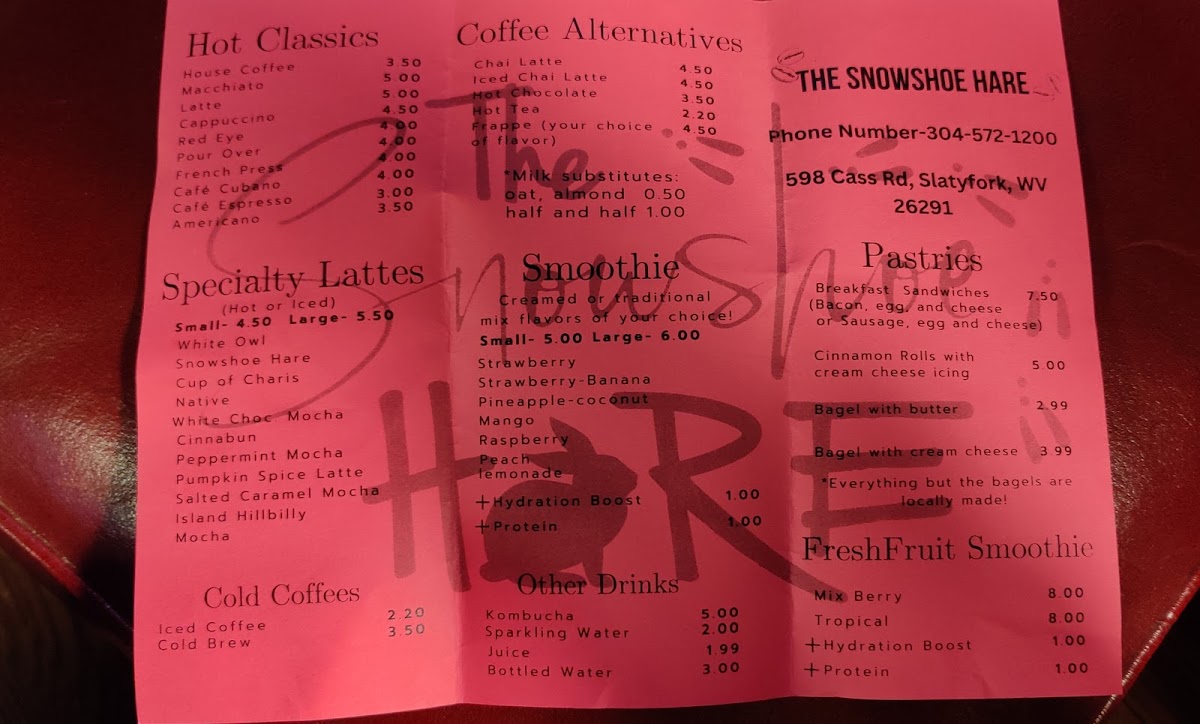 Hot Classics
House Coffee 3.50
Macchiato 5.00
Latte 5.00
Cappuccino 4.50
Red Eye 4.00
Pour Over 4.00
French Press 4.00
Café Cubano 4.00
Café Espresso 3.00
Americano 3.50
Specialty Lattes
(Hot or Iced)
Small- 4.50 Large- 5.50
White Owl
Snowshoe Hare
Cup of Charis
Native
White Choc. Mocha
Cinnabun
Peppermint Mocha
Pumpkin Spice Latte
Salted Caramel Mocha
Island Hillbilly
Mocha
Cold Coffees
Iced Coffee 2.20
Cold Brew 3.50
Coffee Alternatives
Chai Latte 4.50
Iced Chai Latte 4.50
Hot Chocolate 3.50
Hot Tea 2.20
Frappe (your choice 4.50
of flavor)
*Milk substitutes:
oat, almond 0.50
half and half 1.00
Smoothie
Creamed or traditional
mix flavors of your choice!
Small- 5.00 Large- 6.00
Strawberry
Strawberry-Banana
Pineapple-coconut
Mango
Raspberry
Peach
lemonade
+Hydration Boost 1.00
+Protein 1.00
Other Drinks
Kombucha 5.00
Sparkling Water 2.00
Juice 1.99
Bottled Water 3.00
THE SNOWSHOE HARE
Phone Number-304-572-1200
598 Cass Rd, Slatyfork, WV
26291
Pastries
Breakfast Sandwiches 7.50
(Bacon, egg, and cheese
or Sausage, egg and cheese)
Cinnamon Rolls with
cream cheese icing 5.00
Bagel with butter 2.99
Bagel with cream cheese 3.99
*Everything but the bagels are
locally made!
FreshFruit Smoothie
Mix Berry 8.00
Tropical 8.00
+Hydration Boost 1.00
+Protein 1.00
The
Snowshoe
HARE